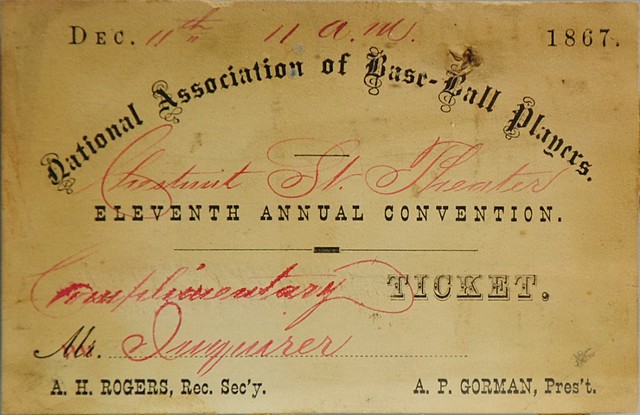 DEC. 11th 11 a.m. 1867.
National Association of Base-Ball Players.
Chestnut St. Theater
ELEVENTH ANNUAL CONVENTION.
Complimentary TICKET.
Mr. Inquirer
A. H. ROGERS, Rec. Sec'y. A. P. GORMAN, Pres't.